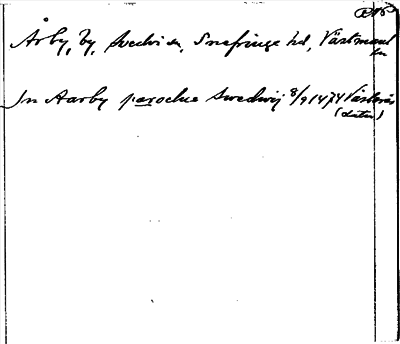 Årby, by, Svedvi sn, Snefringe hd, Västmanl
ln
In Aarby parochie Swedwij 8/9 1474 Västerås
(dater)